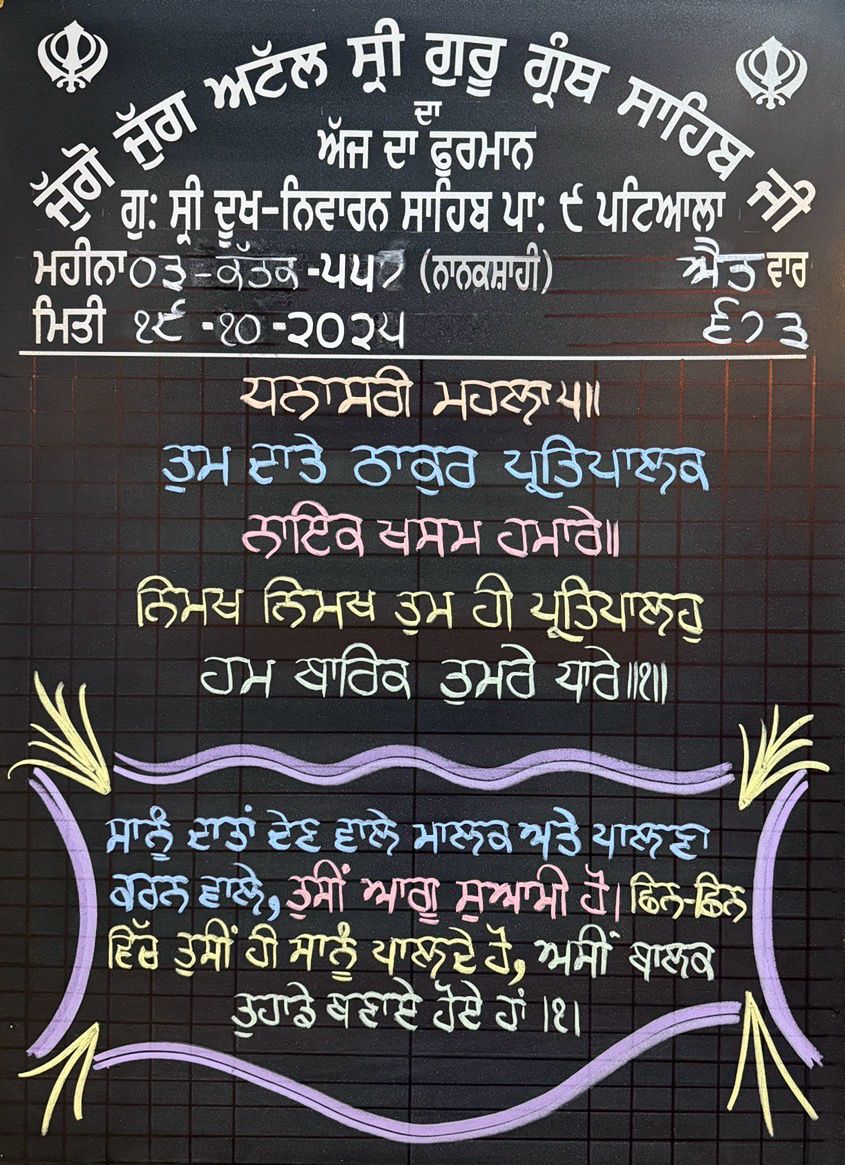 ਜੁੱਗੋ ਜੁੱਗ ਅਟੱਲ ਸ੍ਰੀ ਗੁਰੂ ਗ੍ਰੰਥ ਸਾਹਿਬ ਜੀ
ਦਾ
ਅੱਜ ਦਾ ਫੁਰਮਾਨ
ਗੁ: ਸ੍ਰੀ ਦੂਖ-ਨਿਵਾਰਨ ਸਾਹਿਬ ਪਾ: ੯ ਪਟਿਆਲਾ
ਮਹੀਨਾ ੦੩-ਕੱਤਕ-੫੫੭ (ਨਾਨਕਸ਼ਾਹੀ) ਐਤ ਵਾਰ
ਮਿਤੀ ੧੯-੧੦-੨੦੨੫ ੬੭੩
ਧਨਾਸਰੀ ਮਹਲਾ ੫॥
ਤੁਮ ਦਾਤੇ ਠਾਕੁਰ ਪ੍ਰਤਿਪਾਲਕ
ਨਾਇਕ ਖਸਮ ਹਮਾਰੇ॥
ਨਿਮਖ ਨਿਮਖ ਤੁਮ ਹੀ ਪ੍ਰਤਿਪਾਲਹੁ
ਹਮ ਬਾਰਿਕ ਤੁਮਰੇ ਧਾਰੇ॥੧॥
ਸਾਨੂੰ ਦਾਤਾਂ ਦੇਣ ਵਾਲੇ ਮਾਲਕ ਅਤੇ ਪਾਲਣਾ
ਕਰਨ ਵਾਲੇ, ਤੁਸੀਂ ਆਗੂ ਸੁਆਮੀ ਹੋ। ਛਿਨ-ਛਿਨ
ਵਿੱਚ ਤੁਸੀਂ ਹੀ ਸਾਨੂੰ ਪਾਲਦੇ ਹੋ, ਅਸੀਂ ਬਾਲਕ
ਤੁਹਾਡੇ ਬਣਾਏ ਹੋਏ ਹਾਂ।੧।